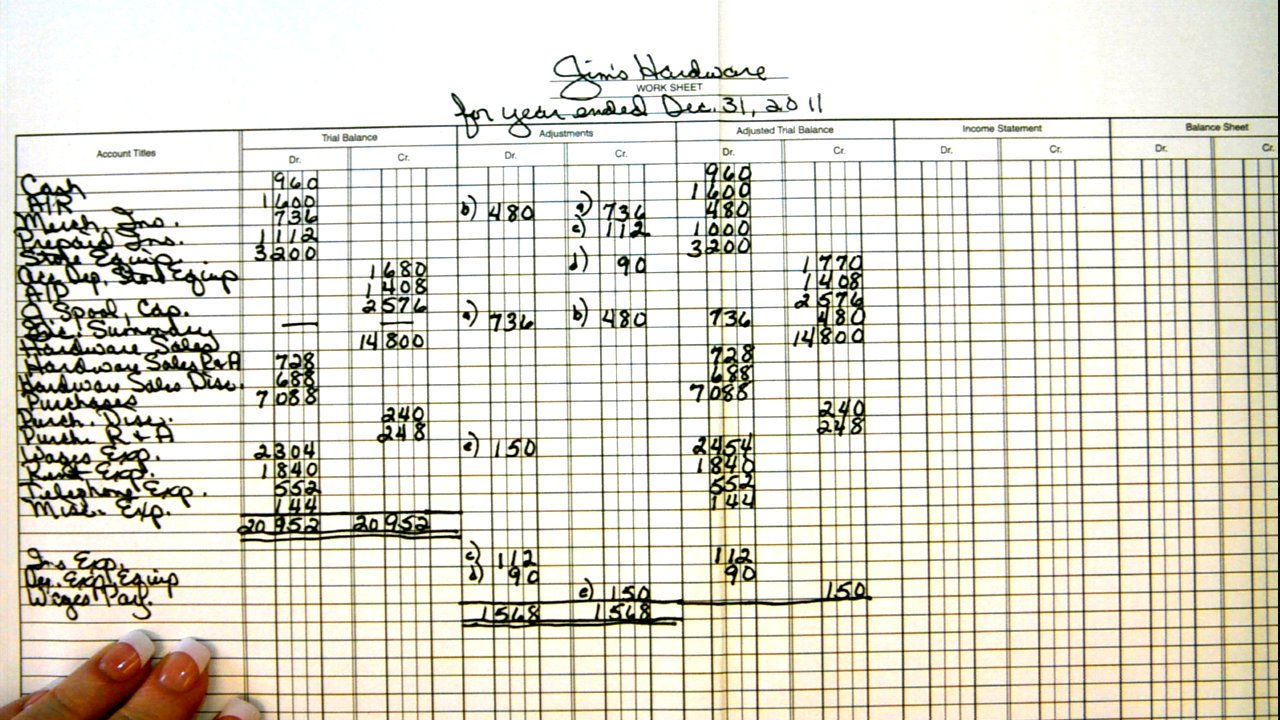 Jim's Hardware
WORK SHEET
for year ended Dec. 31, 2011
Account Titles Trial Balance Adjustments Adjusted Trial Balance Income Statement Balance Sheet
Dr. Cr. Dr. Cr. Dr. Cr. Dr. Cr. Dr. Cr.
Cash 960 960
A/R 1600 1600
Merch. Inv. 736 b) 480 a) 736 480
Prepaid Ins. 1112 c) 112 1000
Store Equip. 3200 3200
Acc. Dep. Store Equip 1680 d) 90 1770
A/P 1408 1408
J. Spool, Cap. 2576 2576
Inc. Summary — — a) 736 b) 480 736 480
Hardware Sales 14800 14800
Hardware Sales R&A 728 728
Hardware Sales Disc. 688 688
Purchases 7088 7088
Purch. Disc. 240 240
Purch. R & A 248 248
Wages Exp. 2304 e) 150 2454
Rent Exp. 1840 1840
Telephone Exp. 552 552
Misc. Exp. 144 144
20952 20952
Ins Exp. c) 112 112
Dep. Exp. Equip d) 90 90
Wages Pay. e) 150 150
1568 1568